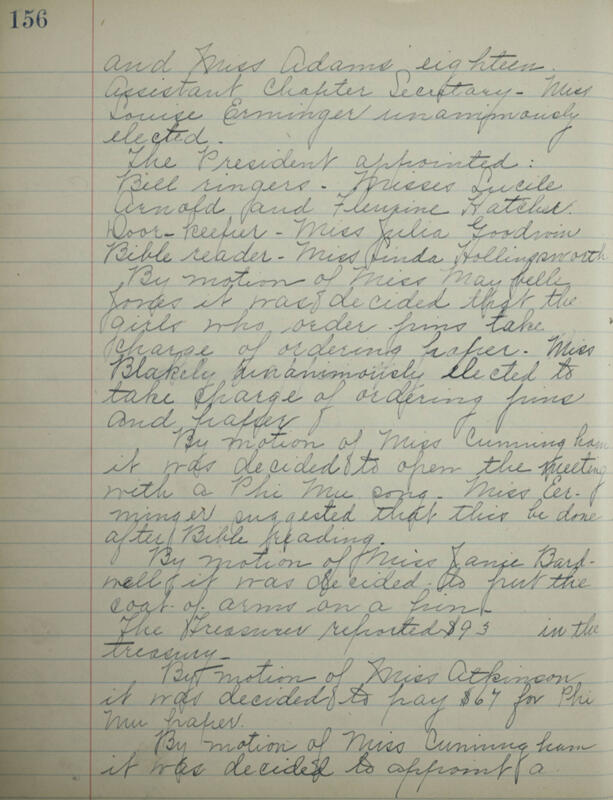 156
and Miss Adams eighteen.
Assistant Chapter Secretary - Miss
Louise Erminger unanimously
elected.
The President appointed:
Bell ringers - Misses Lucile
Arnold and Fleurine Hatcher.
Door-keeper - Miss Julia Goodwin
Bible reader - Miss Linda Hollingsworth
By motion of Miss Maybelle
Jones it was decided that the
girls who order pins take
charge of ordering paper. Miss
Blakely unanimously elected to
take charge of ordering pins
and paper.
By motion of Miss Cunningham
it was decided to open the meeting
with a Phi Mu song. Miss Er-
minger suggested that this be done
after Bible reading.
By motion of Miss Janie Bard-
well it was decided to put the
coat-of-arms on a pin.
The Treasurer reported $93 in the
treasury.
By motion of Miss Atkinson
it was decided to pay $67 for Phi
Mu paper.
By motion of Miss Cunningham
it was decided to appoint a